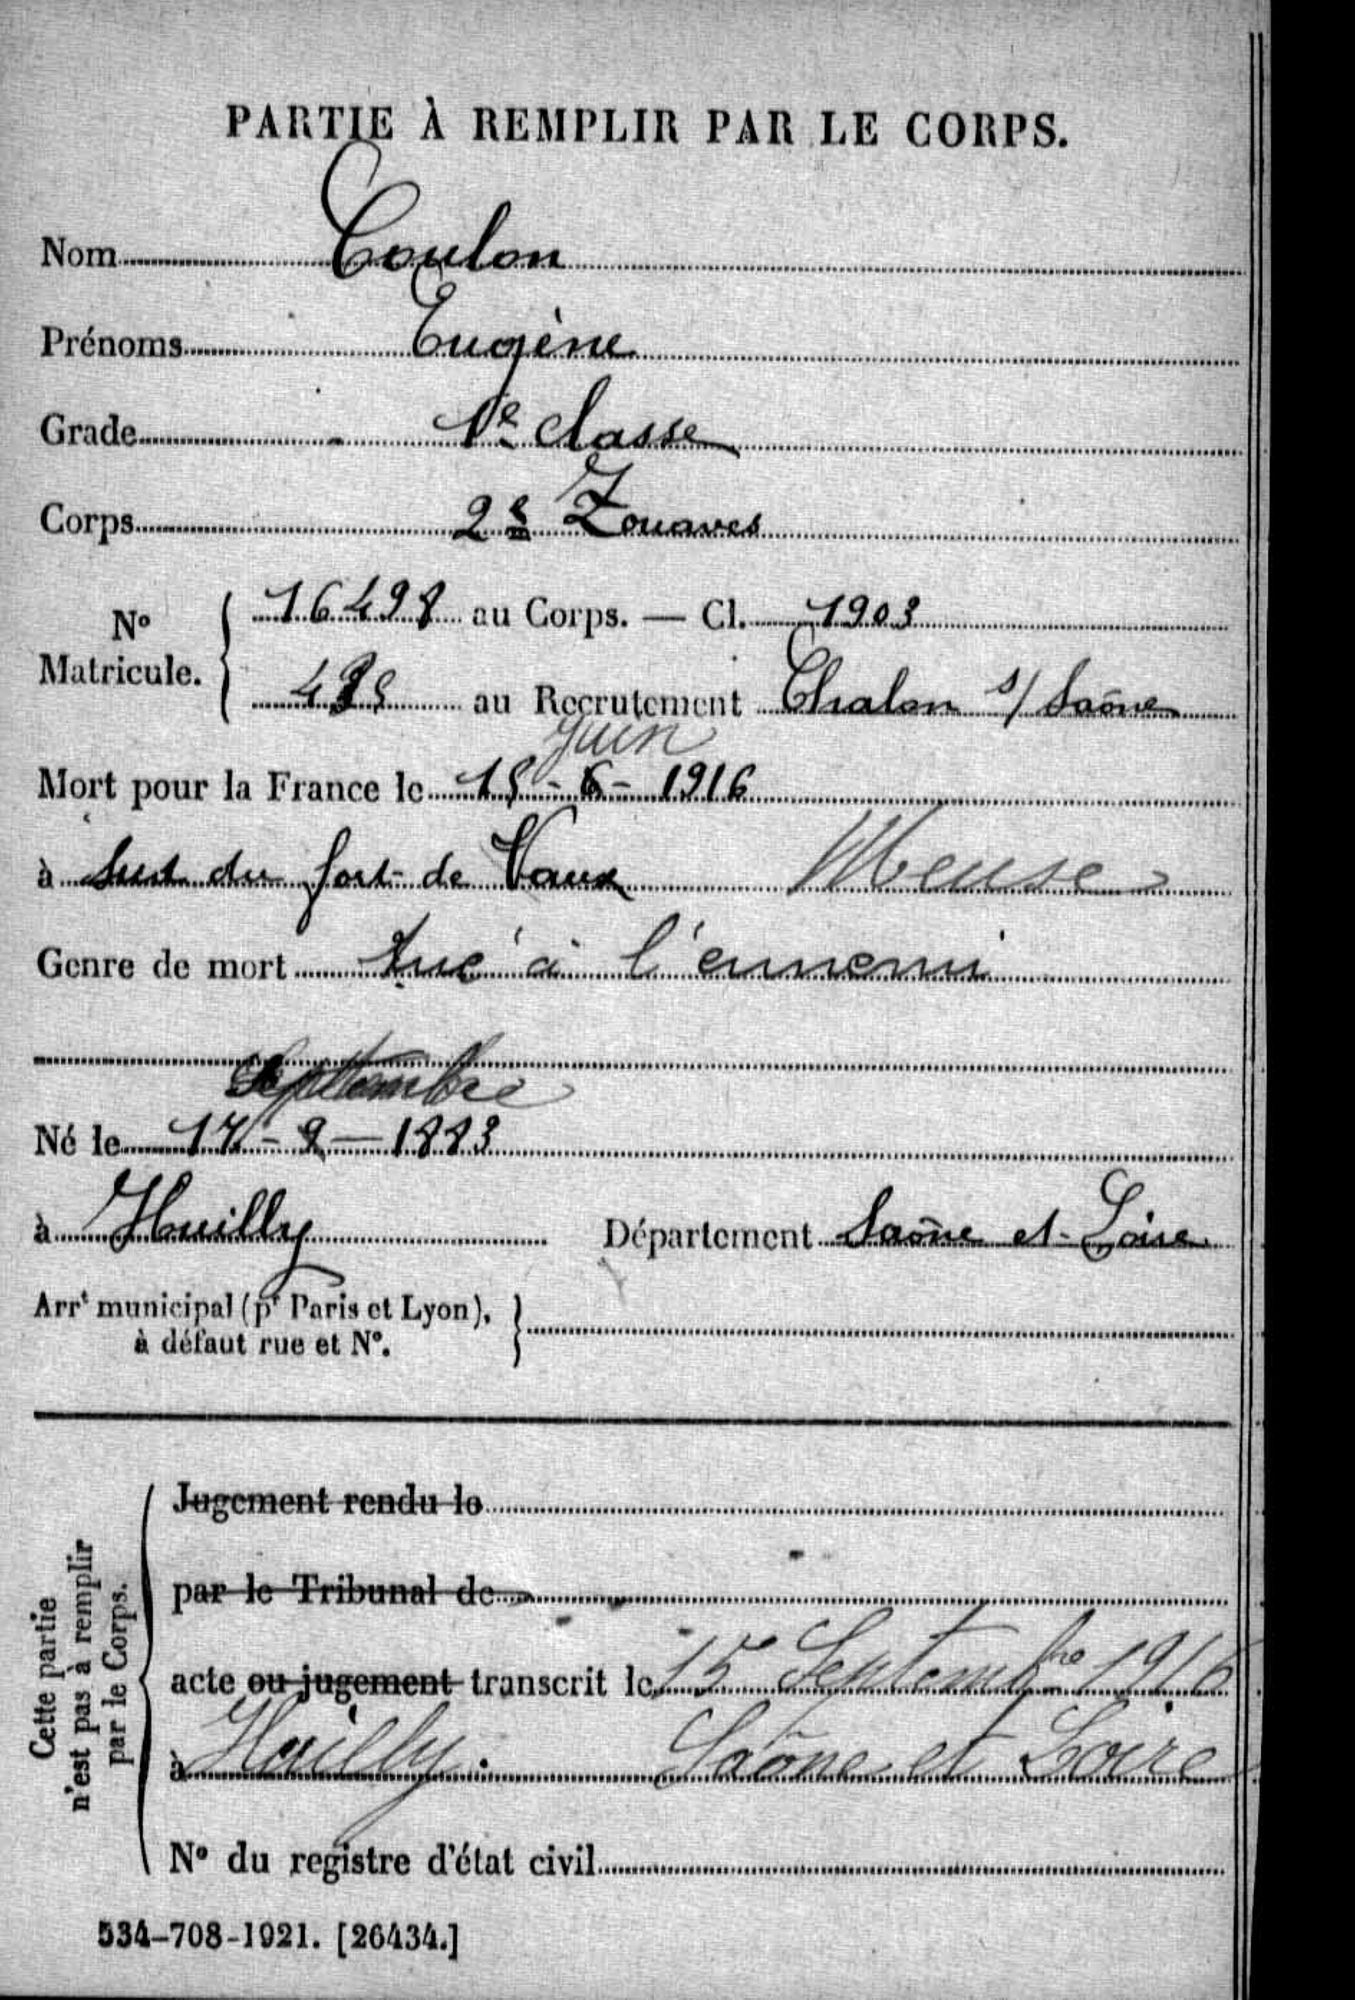 PARTIE À REMPLIR PAR LE CORPS.
Nom Coulon
Prénoms Eugène
Grade 1e classe
Corps 2e Zouaves
No Matricule. 16498 au Corps. — Cl. 1903
au Recrutement Chalon s/ Saône
juin
Mort pour la France le 15 - 6 - 1916
à Sud du fort de Vaux Meuse
Genre de mort tué à l'ennemi
Septembre
Né le 17 - 9 - 1883
à Huilly Département Saône et Loire
Arrt municipal (pr Paris et Lyon),
à défaut rue et No.
Cette partie
n'est pas à remplir
par le Corps.
Jugement rendu le
par le Tribunal de
acte ou jugement transcrit le 15 Septembre 1916
à Huilly. Saône et Loire
No du registre d'état civil
534-708-1921. [26434.]